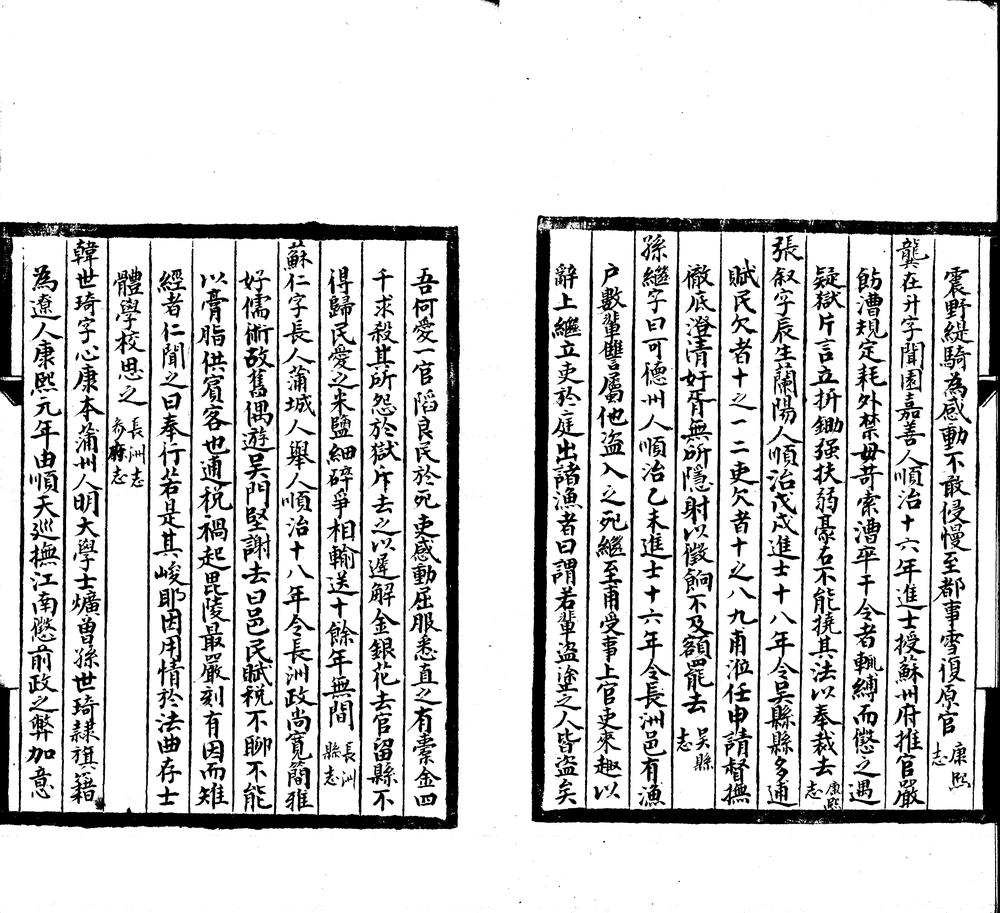 震野緹騎為感動不敢侵慢至都事雪復原官康熙志
龔在升字聞園嘉善人順治十六年進士授蘇州府推官嚴
飭漕規定耗外禁毋苛索漕卒干令者輒縛而懲之遇
疑獄片言立折鋤强扶弱豪右不能撓其法以奉裁去康熙志
張叙字辰生蘭陽人順治戊戌進士十八年令吳縣縣多逋
賦民欠者十之一二吏欠者十之八九甫涖任申請督撫
徹底澄清奸胥無所隱射以徵餉不及額罷去吳縣志
孫繼字曰可德州人順治乙未進士十六年令長洲邑有漁
户數輩讐屬他盜入之死繼至甫受事上官吏來趣以
辭上繼立吏於庭出諸漁者曰謂若輩盜塗之人皆盜矣
吾何愛一官䧟良民於死吏感動屈服悉直之有橐金四
千求殺其所怨於獄斥去之以遲解金銀花去官留縣不
得歸民愛之米鹽細碎爭相輸送十餘年無間長洲縣志
蘇仁字長人蒲城人舉人順治十八年令長洲政尚寬簡雅
好儒術故舊偶遊吳門堅謝去曰邑民賦税不聊不能
以膏脂供賓客也逋税禍起毘陵最嚴刻有因而雉
經者仁聞之曰奉行若是其峻耶因用情於法曲存士
體學校思之長洲志叅府志
韓世琦字心康本蒲州人明大學士爌曾孫世琦隸旗籍
為遼人康熙元年由順天巡撫江南懲前政之弊加意